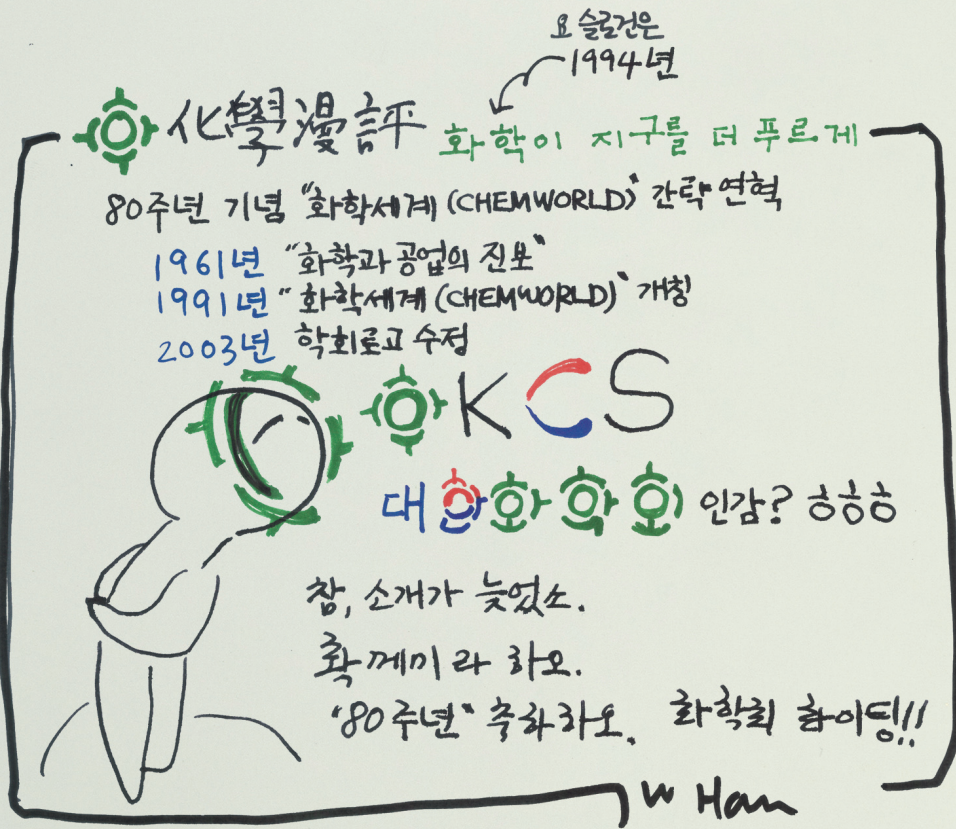 요 슬로건은
1994년
化學漫評 화학이 지구를 더 푸르게
80주년 기념 "화학세계 (CHEMWORLD)" 간략 연혁
1961년 "화학과 공업의 진보"
1991년 "화학세계 (CHEMWORLD)" 개칭
2003년 학회로고 수정
KCS
대한화학회 인감? ㅎㅎㅎ
참, 소개가 늦었소.
확께미라 하오.
"80주년" 축하하오. 화학회 화이팅!!
W Han